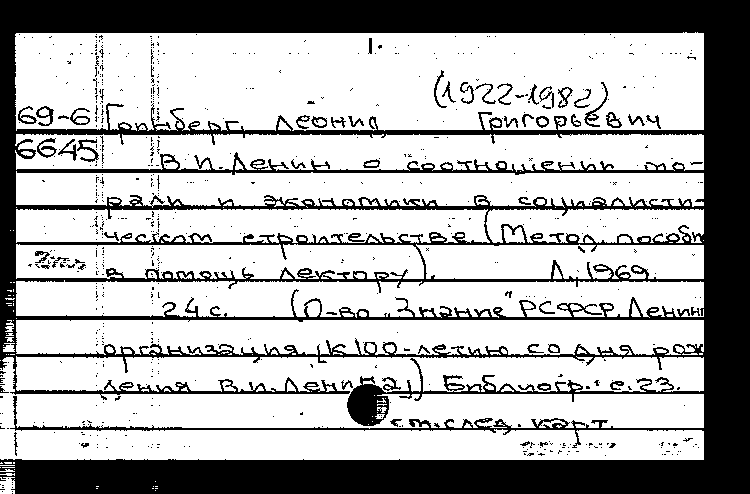 1.
(1922-1982)
69-6 Гринберг, Леонид Григорьевич
6645 В.И.Ленин о соотношении мо-
рали и экономики в социалисти-
ческом строительстве. (Метод. пособи
в помощь лектору). Л., 1969.
24 с. (О-во "Знание" РСФСР. Ленинг
организация. [К 100-летию со дня рож
дения В.И.Ленина]) Библиогр.: с.23.
см.след. карт.